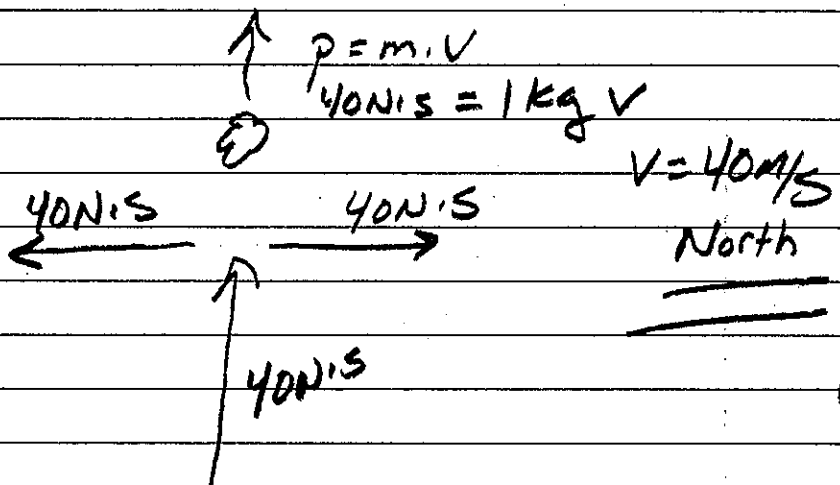 p = m·V
40N·S = 1 kg V
V = 40 M/S
North
40N·S
40N·S
40N·S